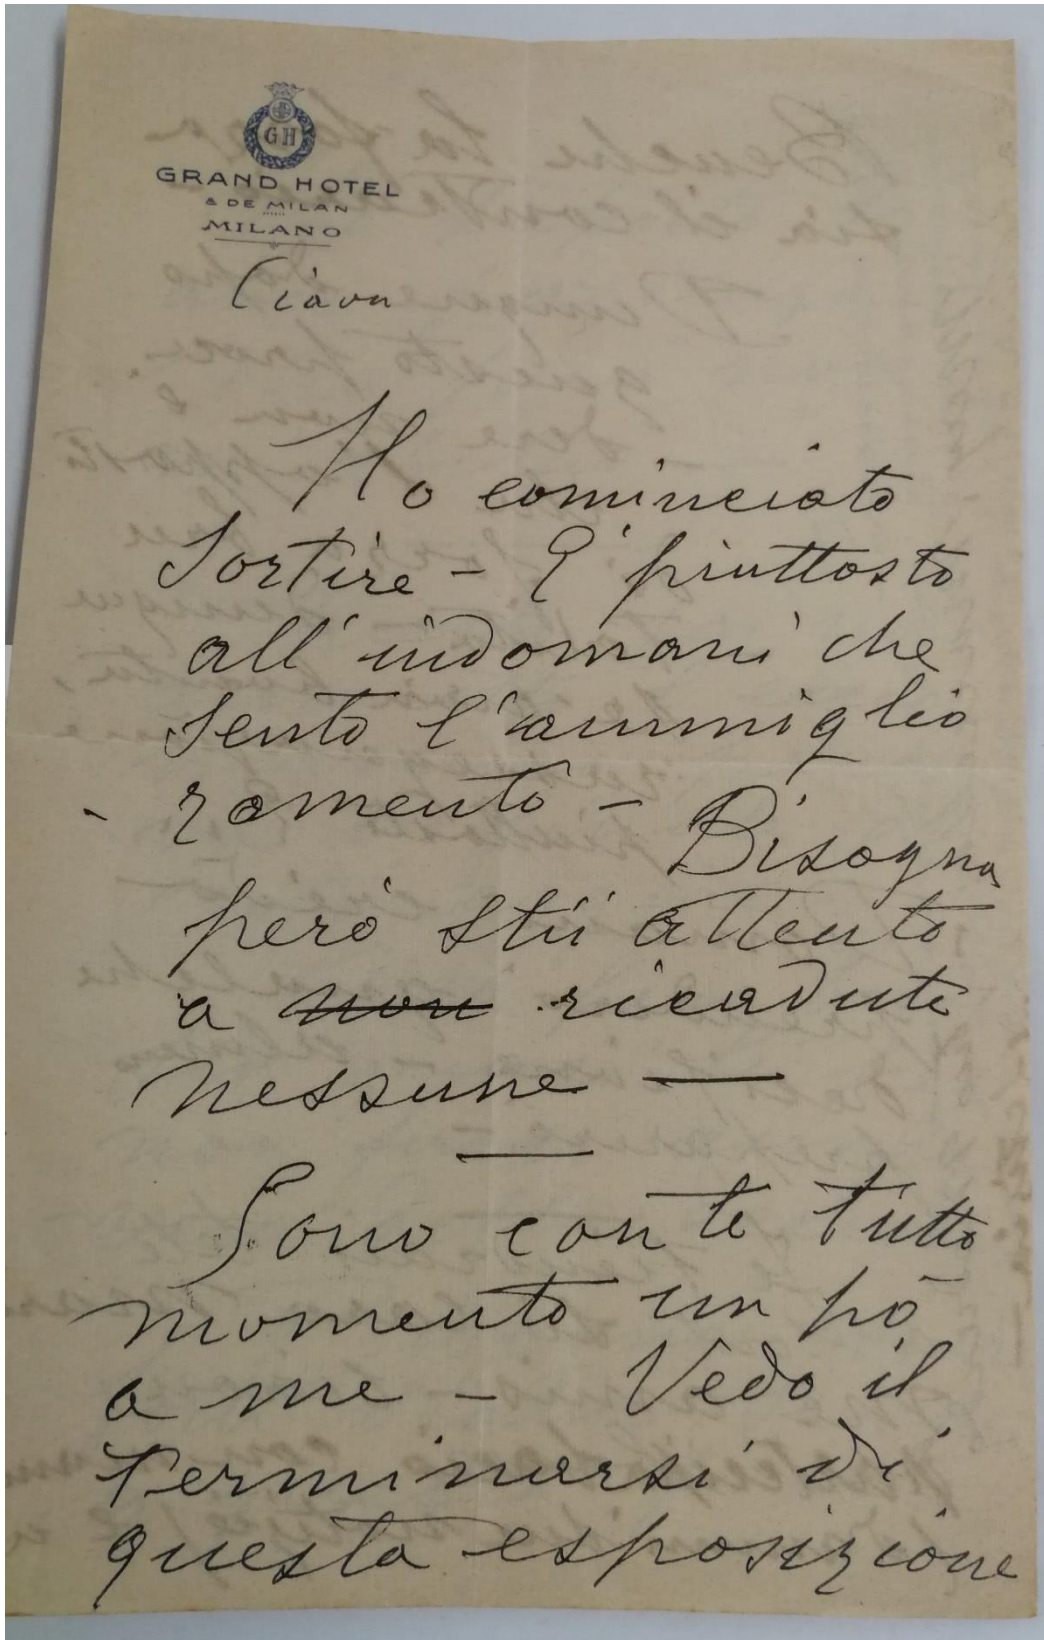 GH
GRAND HOTEL
& DE MILAN
MILANO
Ciavu
Ho cominciato
Sortire – E' piuttosto
all'indomani che
sento l'ammiglio
ramento – Bisogna
però stii attento
a non ricadute
nessune —
Sono con te tutto
momento un pò
a me – Vedo il
Terminarsi di
questa esposizione